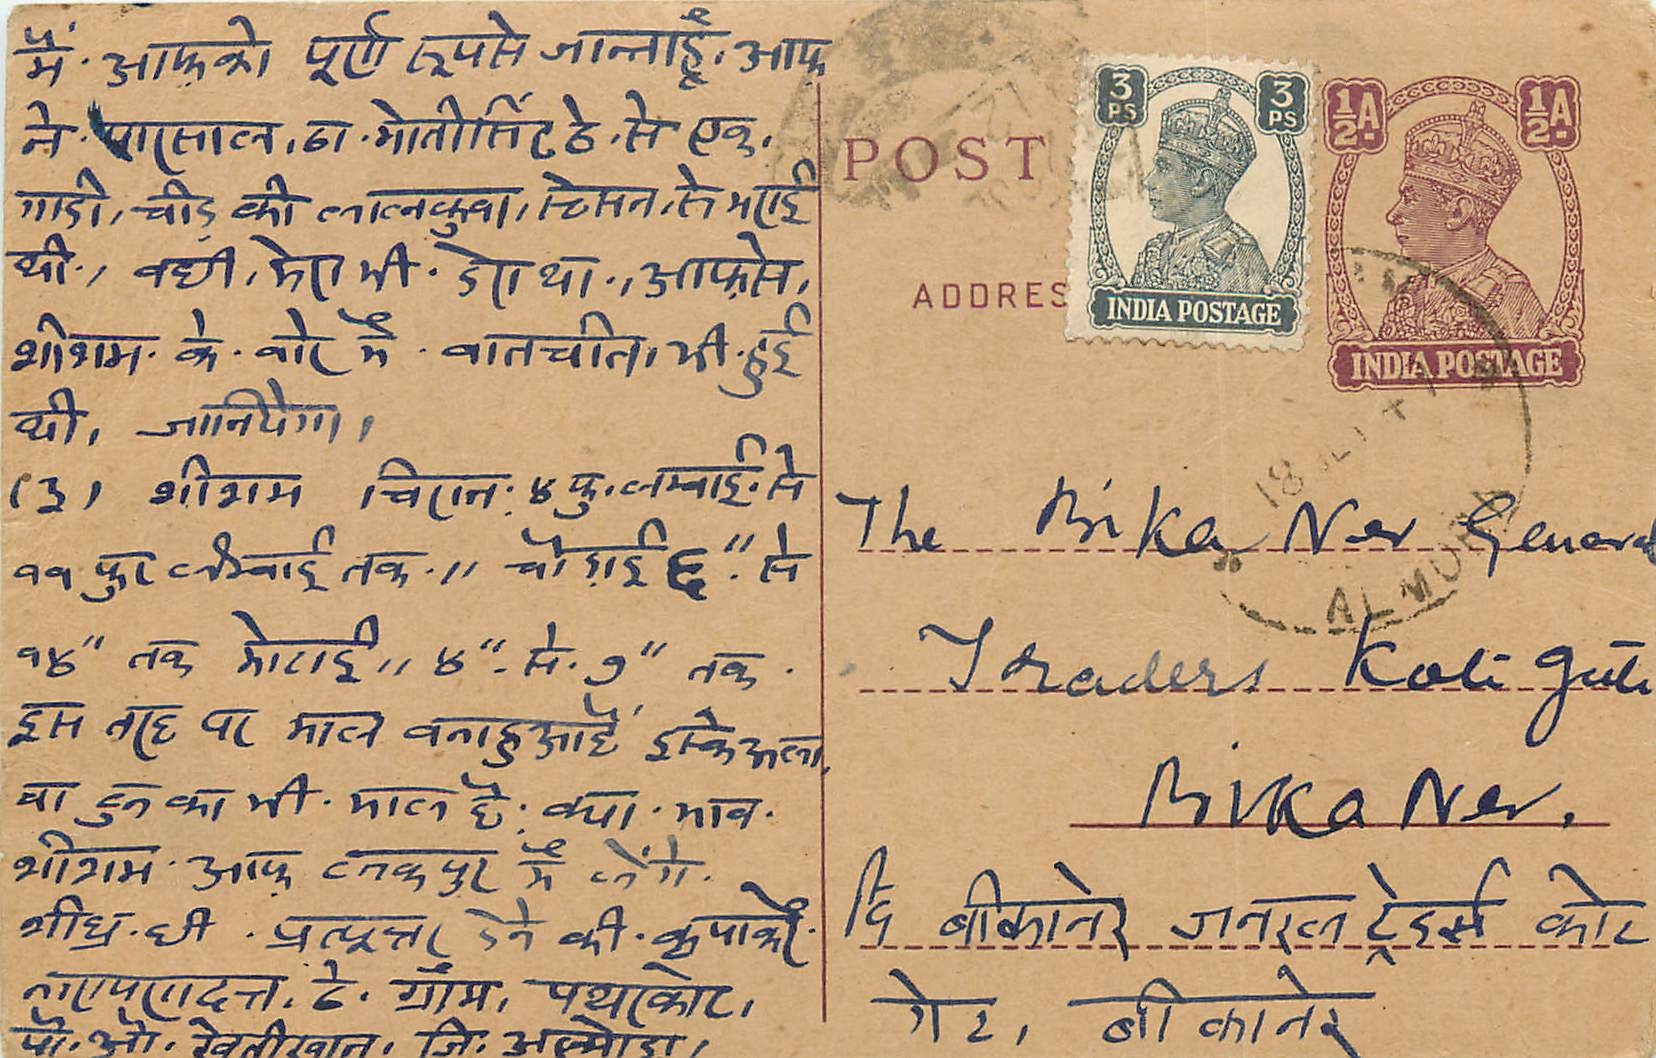 मैं. आफको पूर्ण रूपसे जान्ताहूँ. आफ
ने. पारसाल, ठा. मोतीसिंह ठे. से एक.
गाडी, चीड़ की लालकुवा, स्टेसन, से भराई
थी., वही, मेरा भी. डेरा था., आफसे,
शीशम. के. बारे में. बातचीत, भी. हुई
थी, जानियेगा,
(३) शीशम चिरान. ४ फु. लम्बाई. से
११ फुट लम्बाई तक. ,, चौडाई ६". से
१४" तक मोटाई ,, ४". से. ७" तक.
इस तरह पर माल बनाहुआहै इस्केअला
वा टुन का भी. माल है. क्या. भाव.
शीशम. आफ टनकपुर में लेंगे.
शीघ्र. ही. प्रत्युत्तर देने की. कृपाकरें.
नारायणदत्त. ठे. ग्रौम, पथरकोट,
पो. ओ. खेतीखान, जि. अल्मोडा,
POST
ADDRES
3 PS 3 PS
INDIA POSTAGE
½A. ½A.
INDIA POSTAGE
18
ALMORA
The Bika Ner General
Traders Kote Gate
Bika Ner.
दि बीकानेर जनरल ट्रेडर्स कोट
गेट, बीकानेर